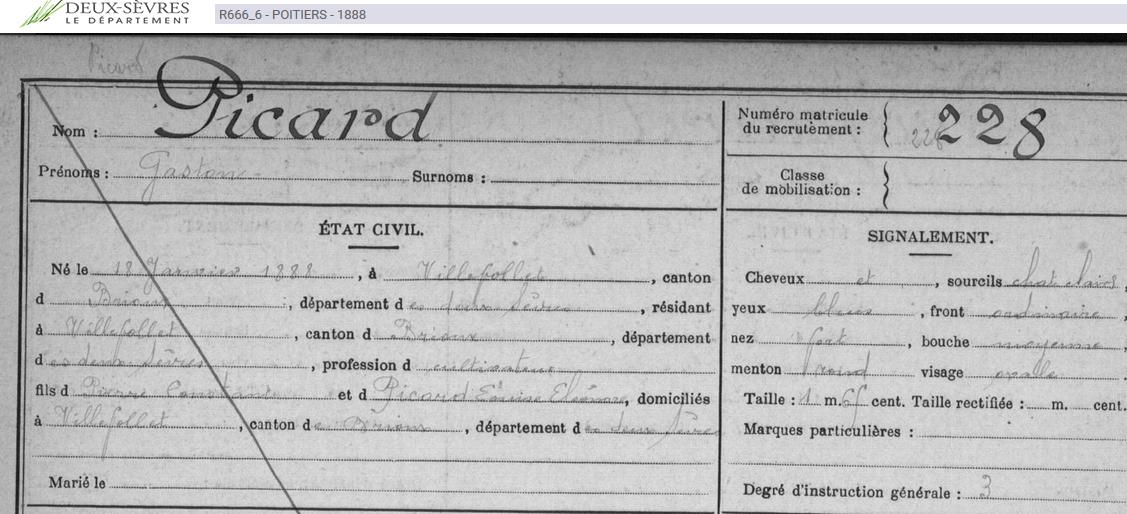 DEUX-SÈVRES
LE DÉPARTEMENT
R666_6 - POITIERS - 1888
Picard
Nom : Picard
Prénoms : Gaston Surnoms :
Numéro matricule du recrutement : 228 228
Classe de mobilisation :
ÉTAT CIVIL.
Né le 18 Janvier 1888, à Villefollet, canton
d Brioux, département des deux sèvres, résidant
à Villefollet, canton d Brioux, département
des deux sèvres, profession d cultivateur
fils d Pierre Constant et d Picard Eléonore, domiciliés
à Villefollet, canton de Brioux, département des deux sèvres
Marié le
SIGNALEMENT.
Cheveux et, sourcils chat clairs,
yeux bleus, front ordinaire,
nez fort, bouche moyenne,
menton rond visage ovale.
Taille : 1 m. 66 cent. Taille rectifiée : m. cent.
Marques particulières :
Degré d'instruction générale : 3